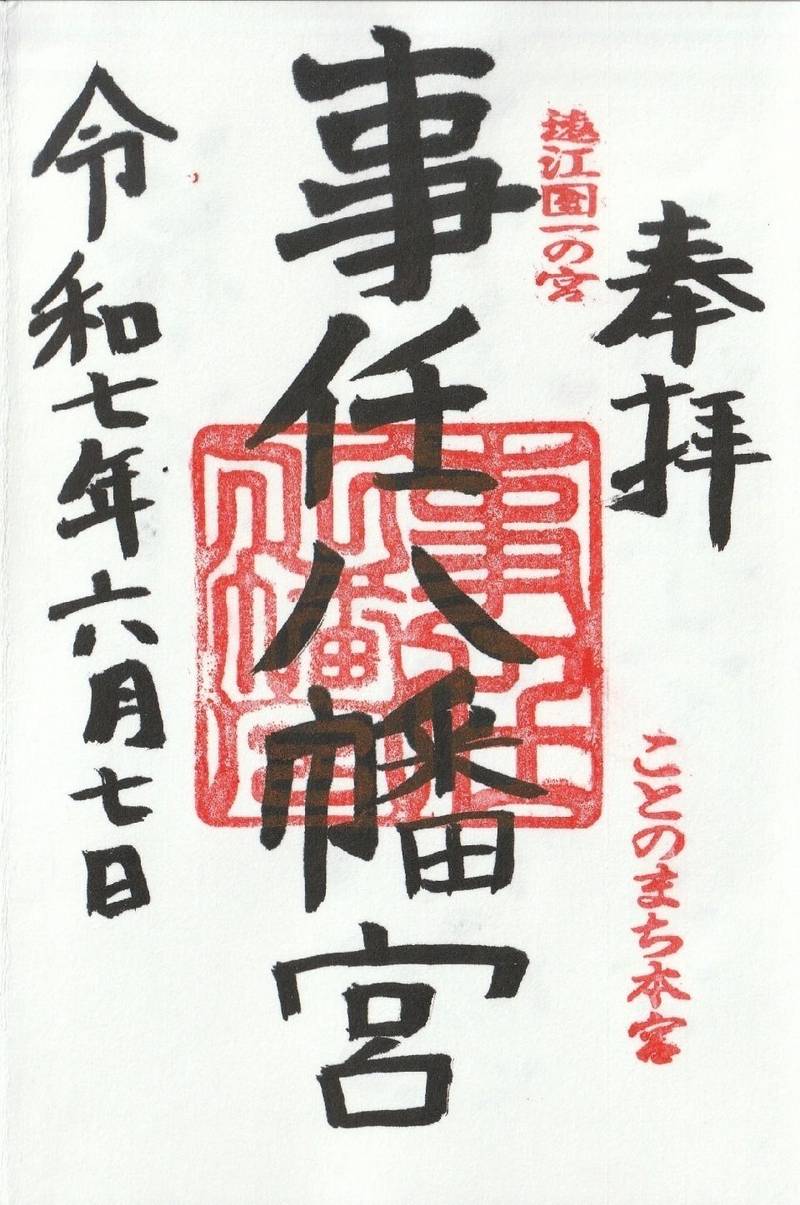 奉拝
遠江国一の宮
ことのまち本宮
事任八幡宮
事任八幡宮
令和七年六月七日